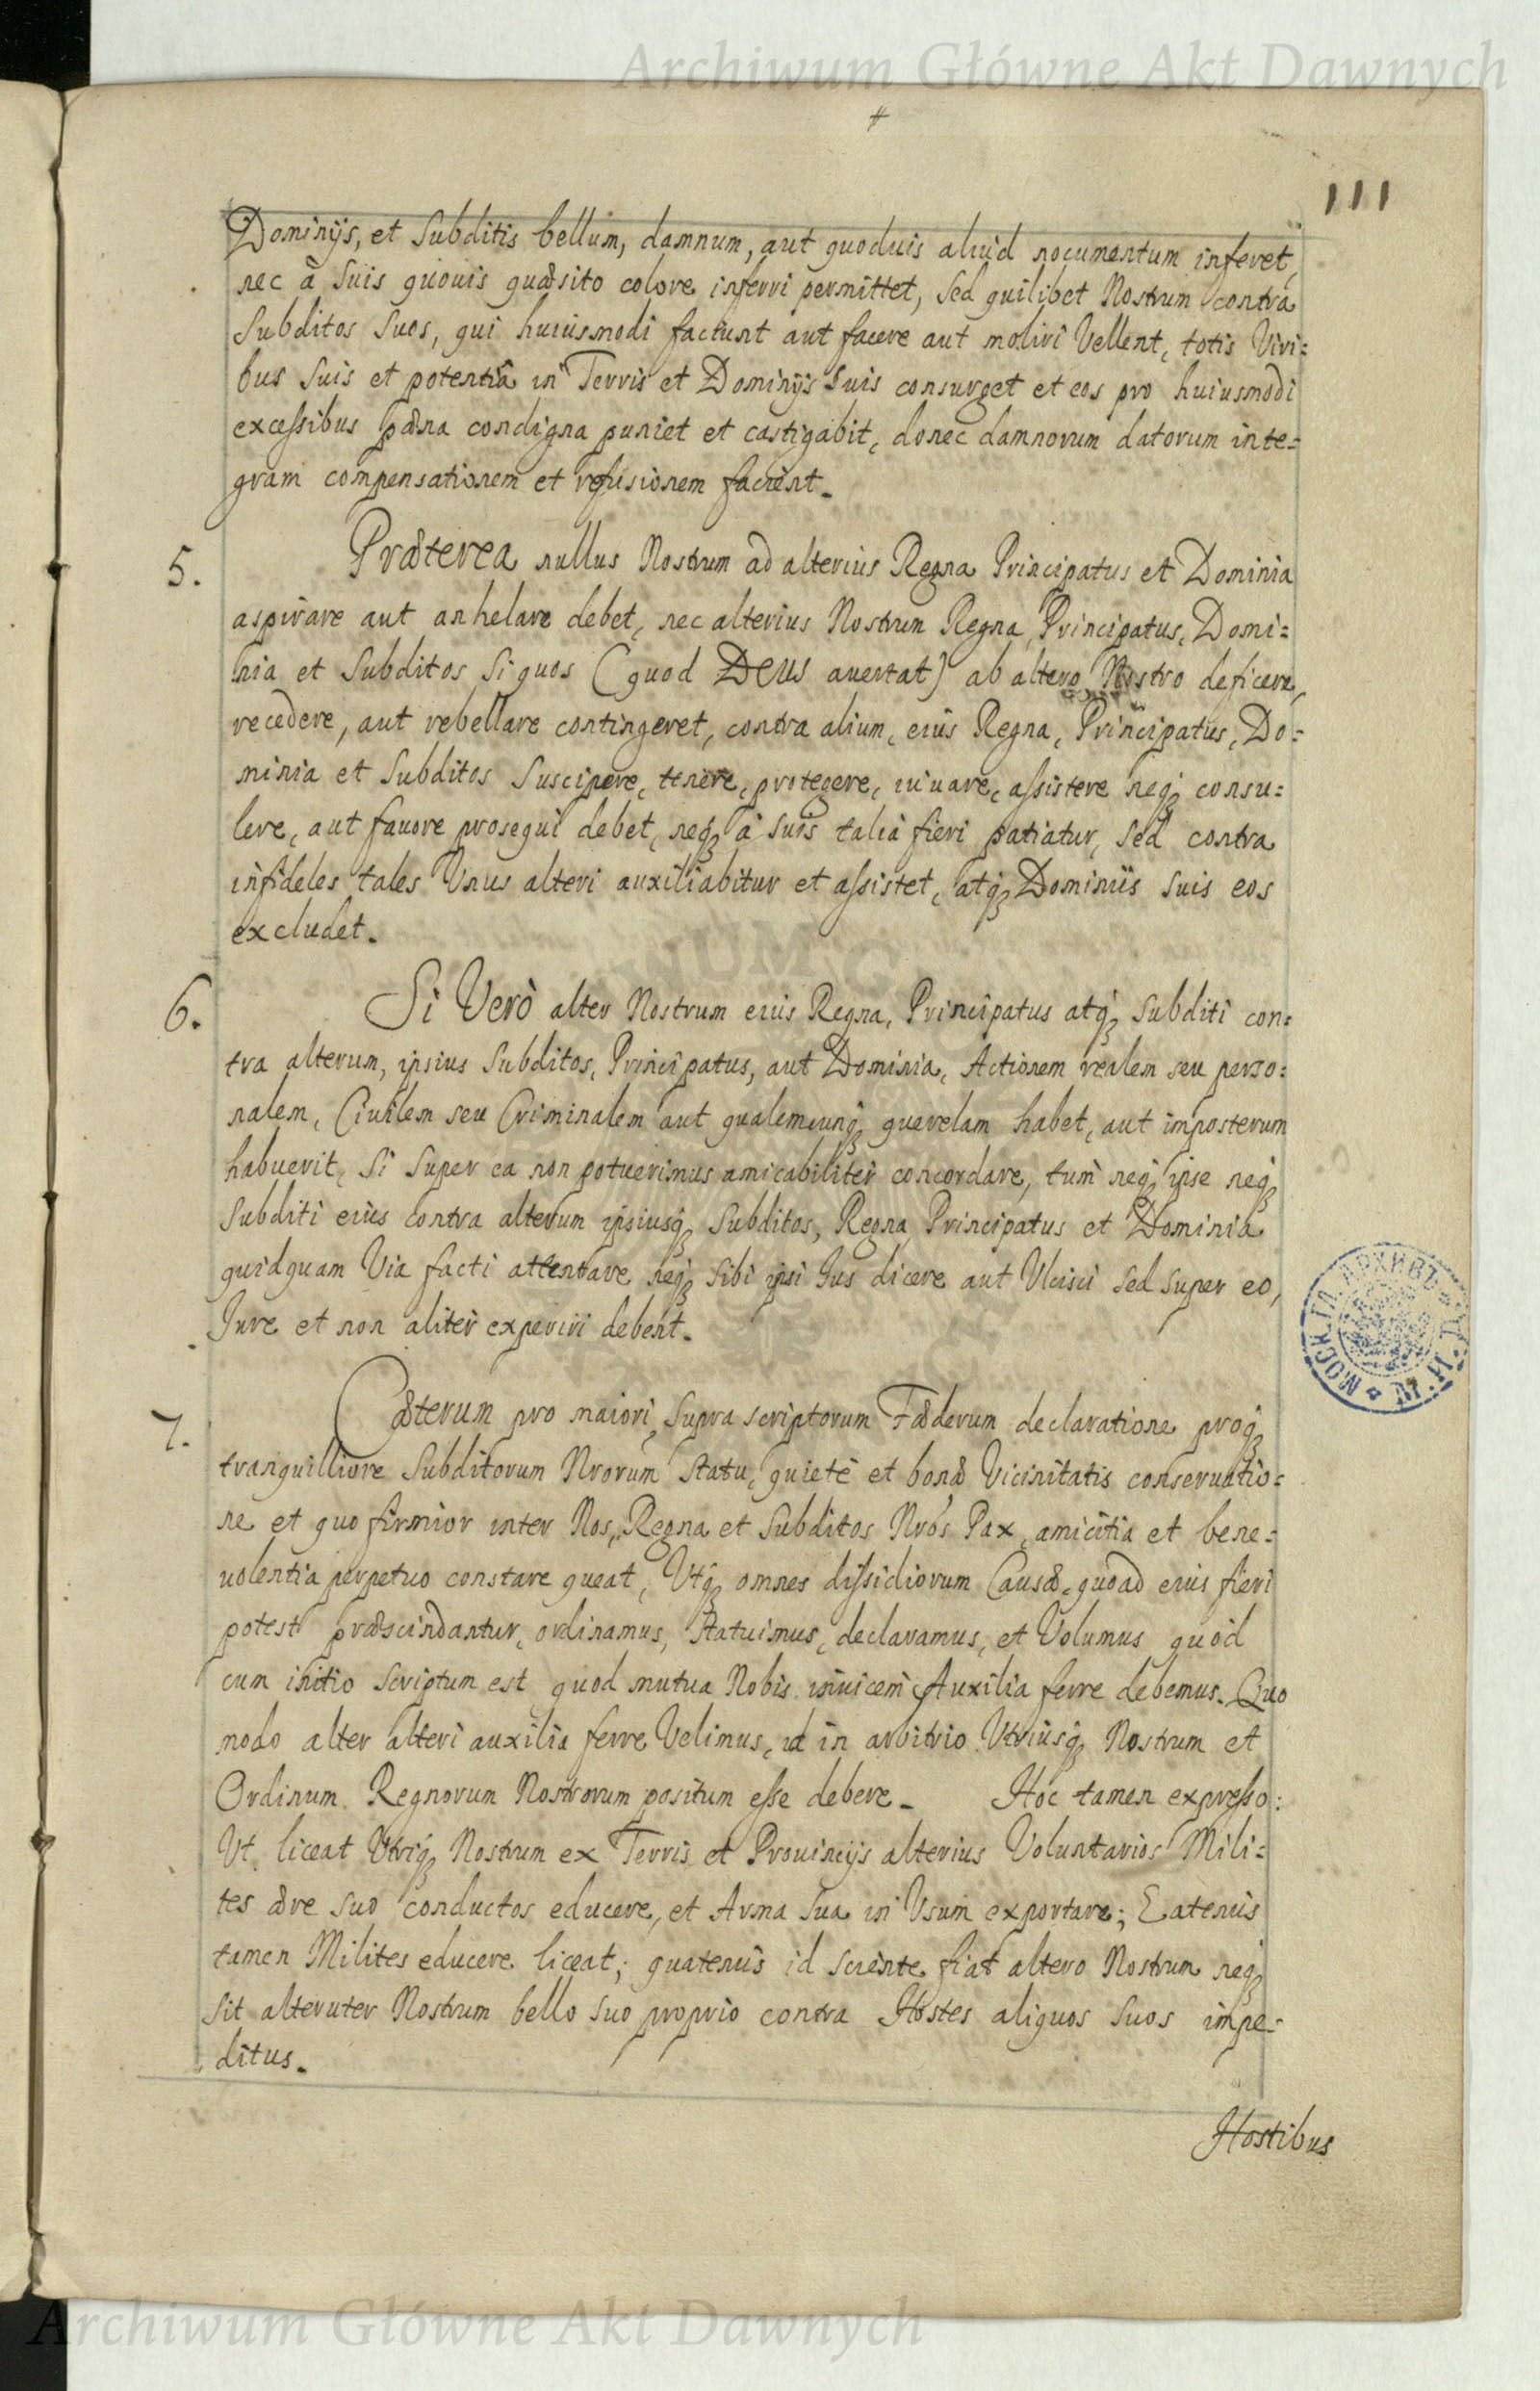 Archiwum Główne Akt Dawnych
#
111
Dominijs, et Subditis bellum, damnum, aut quoduis aliud nocumentum inferet,
nec à Suis quouis quæsito colore inferri permittet, Sed quilibet Nostrum contra
Subditos Suos, qui huiusmodi faciunt aut facere aut moliri Vellent, totis Viri=
bus Suis et potentiâ in Terris et Dominijs Suis consurget et eos pro huiusmodi
excessibus pæna condigna puniet et castigabit, donec damnorum datorum inte=
gram compensationem et refusionem facient.
5. Præterea nullus Nostrum ad alterius Regna Principatus et Dominia
aspirare aut anhelare debet, nec alterius Nostrum Regna, Principatus, Domi=
nia et Subditos Si quos (quod DEUS auertat) ab altero Nostro deficere,
recedere, aut rebellare contingeret, contra alium, eius Regna, Principatus, Do=
minia et Subditos Suscipere, tenere, protegere, iuuare, assistere neq3 consu=
lere, aut fauore prosequi debet, neq3 à suis talia fieri patiatur, Sed contra
infideles tales Unus alteri auxiliabitur et assistet, atq3 Dominiis suis eos
excludet.
6. Si Verò alter Nostrum eius Regna, Principatus atq3 Subditi con=
tra alterum, ipsius Subditos, Principatus, aut Dominia, Actionem realem seu perso=
nalem, Ciuilem seu Criminalem aut qualemcunq3 querelam habet, aut imposterum
habuerit, Si Super ea non potuerimus amicabiliter concordare, tum neq3 ipse neq3
Subditi eius contra alterum ipsiusq3 Subditos, Regna Principatus et Dominia
quidquam Via facti attentare neq3 Sibi ipsi Ius dicere aut Ulcisci Sed super eo,
Jure et non aliter experiri debent.
7. Cæterum pro maiori, Supra scriptorum Fæderum declaratione proq3
tranquilliore Subditorum Nrorum Statu, quiete et bonæ Vicinitatis conseruatio=
ne et quo firmior inter Nos, Regna et Subditos Nros Pax, amicitia et bene=
uolentia perpetuo constare queat, Utq3 omnes dissidiorum Causæ, quoad eius fieri
potest præscindantur, ordinamus, Statuimus, declaramus, et Volumus quod
cum initio scriptum est quod mutua Nobis inuicem Auxilia ferre debemus. Quo
modo alter alteri auxilia ferre Velimus, id in arbitrio Utriusq3 Nostrum et
Ordinum Regnorum Nostrorum positum esse debere. Hoc tamen expresso:
Ut liceat Utriq3 Nostrum ex Terris et Prouincijs alterius Voluntarios Mili=
tes ære suo conductos educere, et Arma Sua in Usum exportare; Eatenus
tamen Milites educere liceat; quatenus id sciente fiat altero Nostrum neq3
Sit alteruter Nostrum bello suo proprio contra Hostes aliquos Suos impe=
ditus.
Hostibus
Archiwum Główne Akt Dawnych